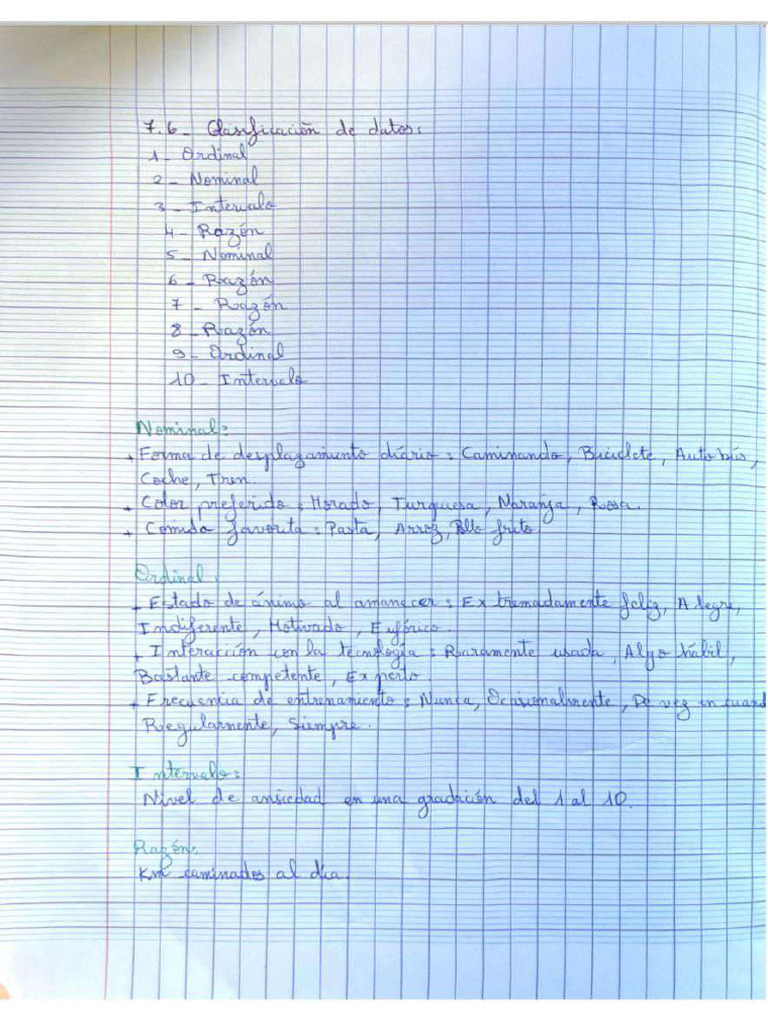 7.6_ Clasificación de datos:
1_ Ordinal
2_ Nominal
3_ Intervalo
4_ Razón
5_ Nominal
6_ Razón
7_ Razón
8_ Razón
9_ Ordinal
10_ Intervalo
Nominal:
+ Forma de desplazamiento diário: Caminando, Biciclete, Autobús,
Coche, Tren.
+ Color preferido: Morado, Turquesa, Naranja, Rosa.
+ Comida favorita: Pasta, Arroz, Pollo frito.
Ordinal.
+ Estado de ánimo al amanecer: Extremadamente feliz, Alegre,
Indiferente, Motivado, Eufórico.
+ Interacción con la tecnología: Raramente usada, Algo hábil,
Bastante competente, Experto.
+ Frecuencia de entrenamiento: Nunca, Ocasionalmente, De vez en cuand
Regularmente, Siempre.
Intervalo:
Nivel de ansiedad en una gradación del 1 al 10.
Razón.
Km caminados al día.